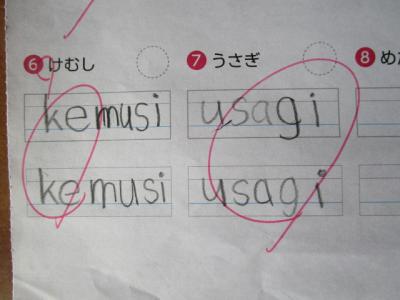 6 けむし
7 うさぎ
8 めだ
kemusi
usagi
kemusi
usagi